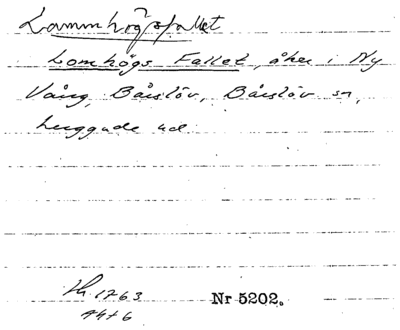 Lammhögsfallet
Lomhögs Fallet, åker i Ny
Vång, Bårslöv, Bårslöv sn,
huggude ud
1763
Nr 5202.